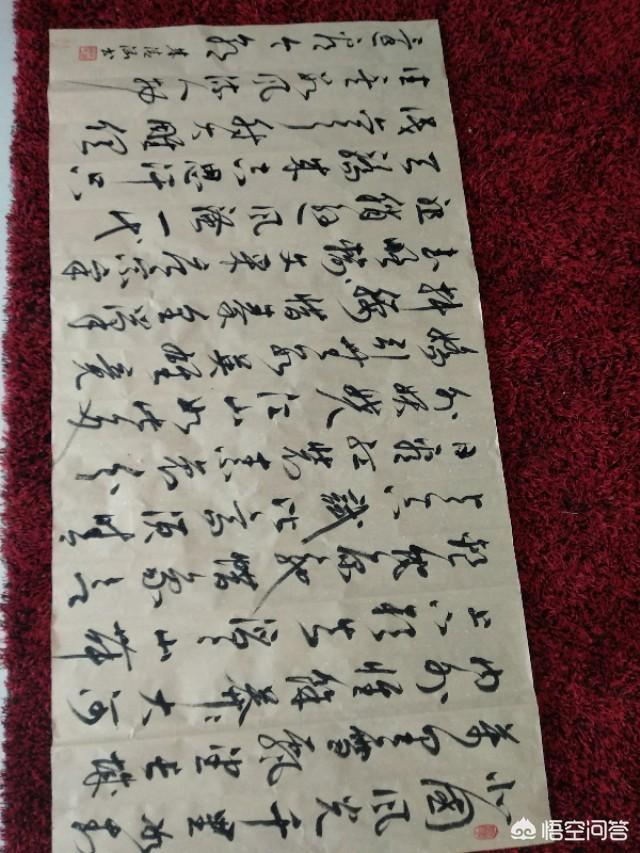 北國风光千里冰封
万里雪飘望长城
内外惟余莽莽大河
上下顿失滔滔山舞
银蛇原驰蜡象欲与
天公试比高须晴
日看红装素裹分
外妖娆江山如此多
娇引无数英雄竞
折腰惜秦皇汉
武略输文采唐宗宋
祖稍逊风骚一代
天骄成吉思汗只
识弯弓射大雕俱
往矣数风流人物
还看今朝
悟空问答